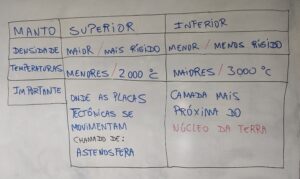 MANTO SUPERIOR INFERIOR
DENSIDADE MAIOR / MAIS RÍGIDO MENOR / MENOS RÍGIDO
TEMPERATURAS MENORES / 2000 °C MAIORES / 3000 °C
IMPORTANTE ONDE AS PLACAS CAMADA MAIS
TECTÔNICAS SE PRÓXIMA DO
MOVIMENTAM NÚCLEO DA TERRA
CHAMADO DE:
ASTENOSFERA